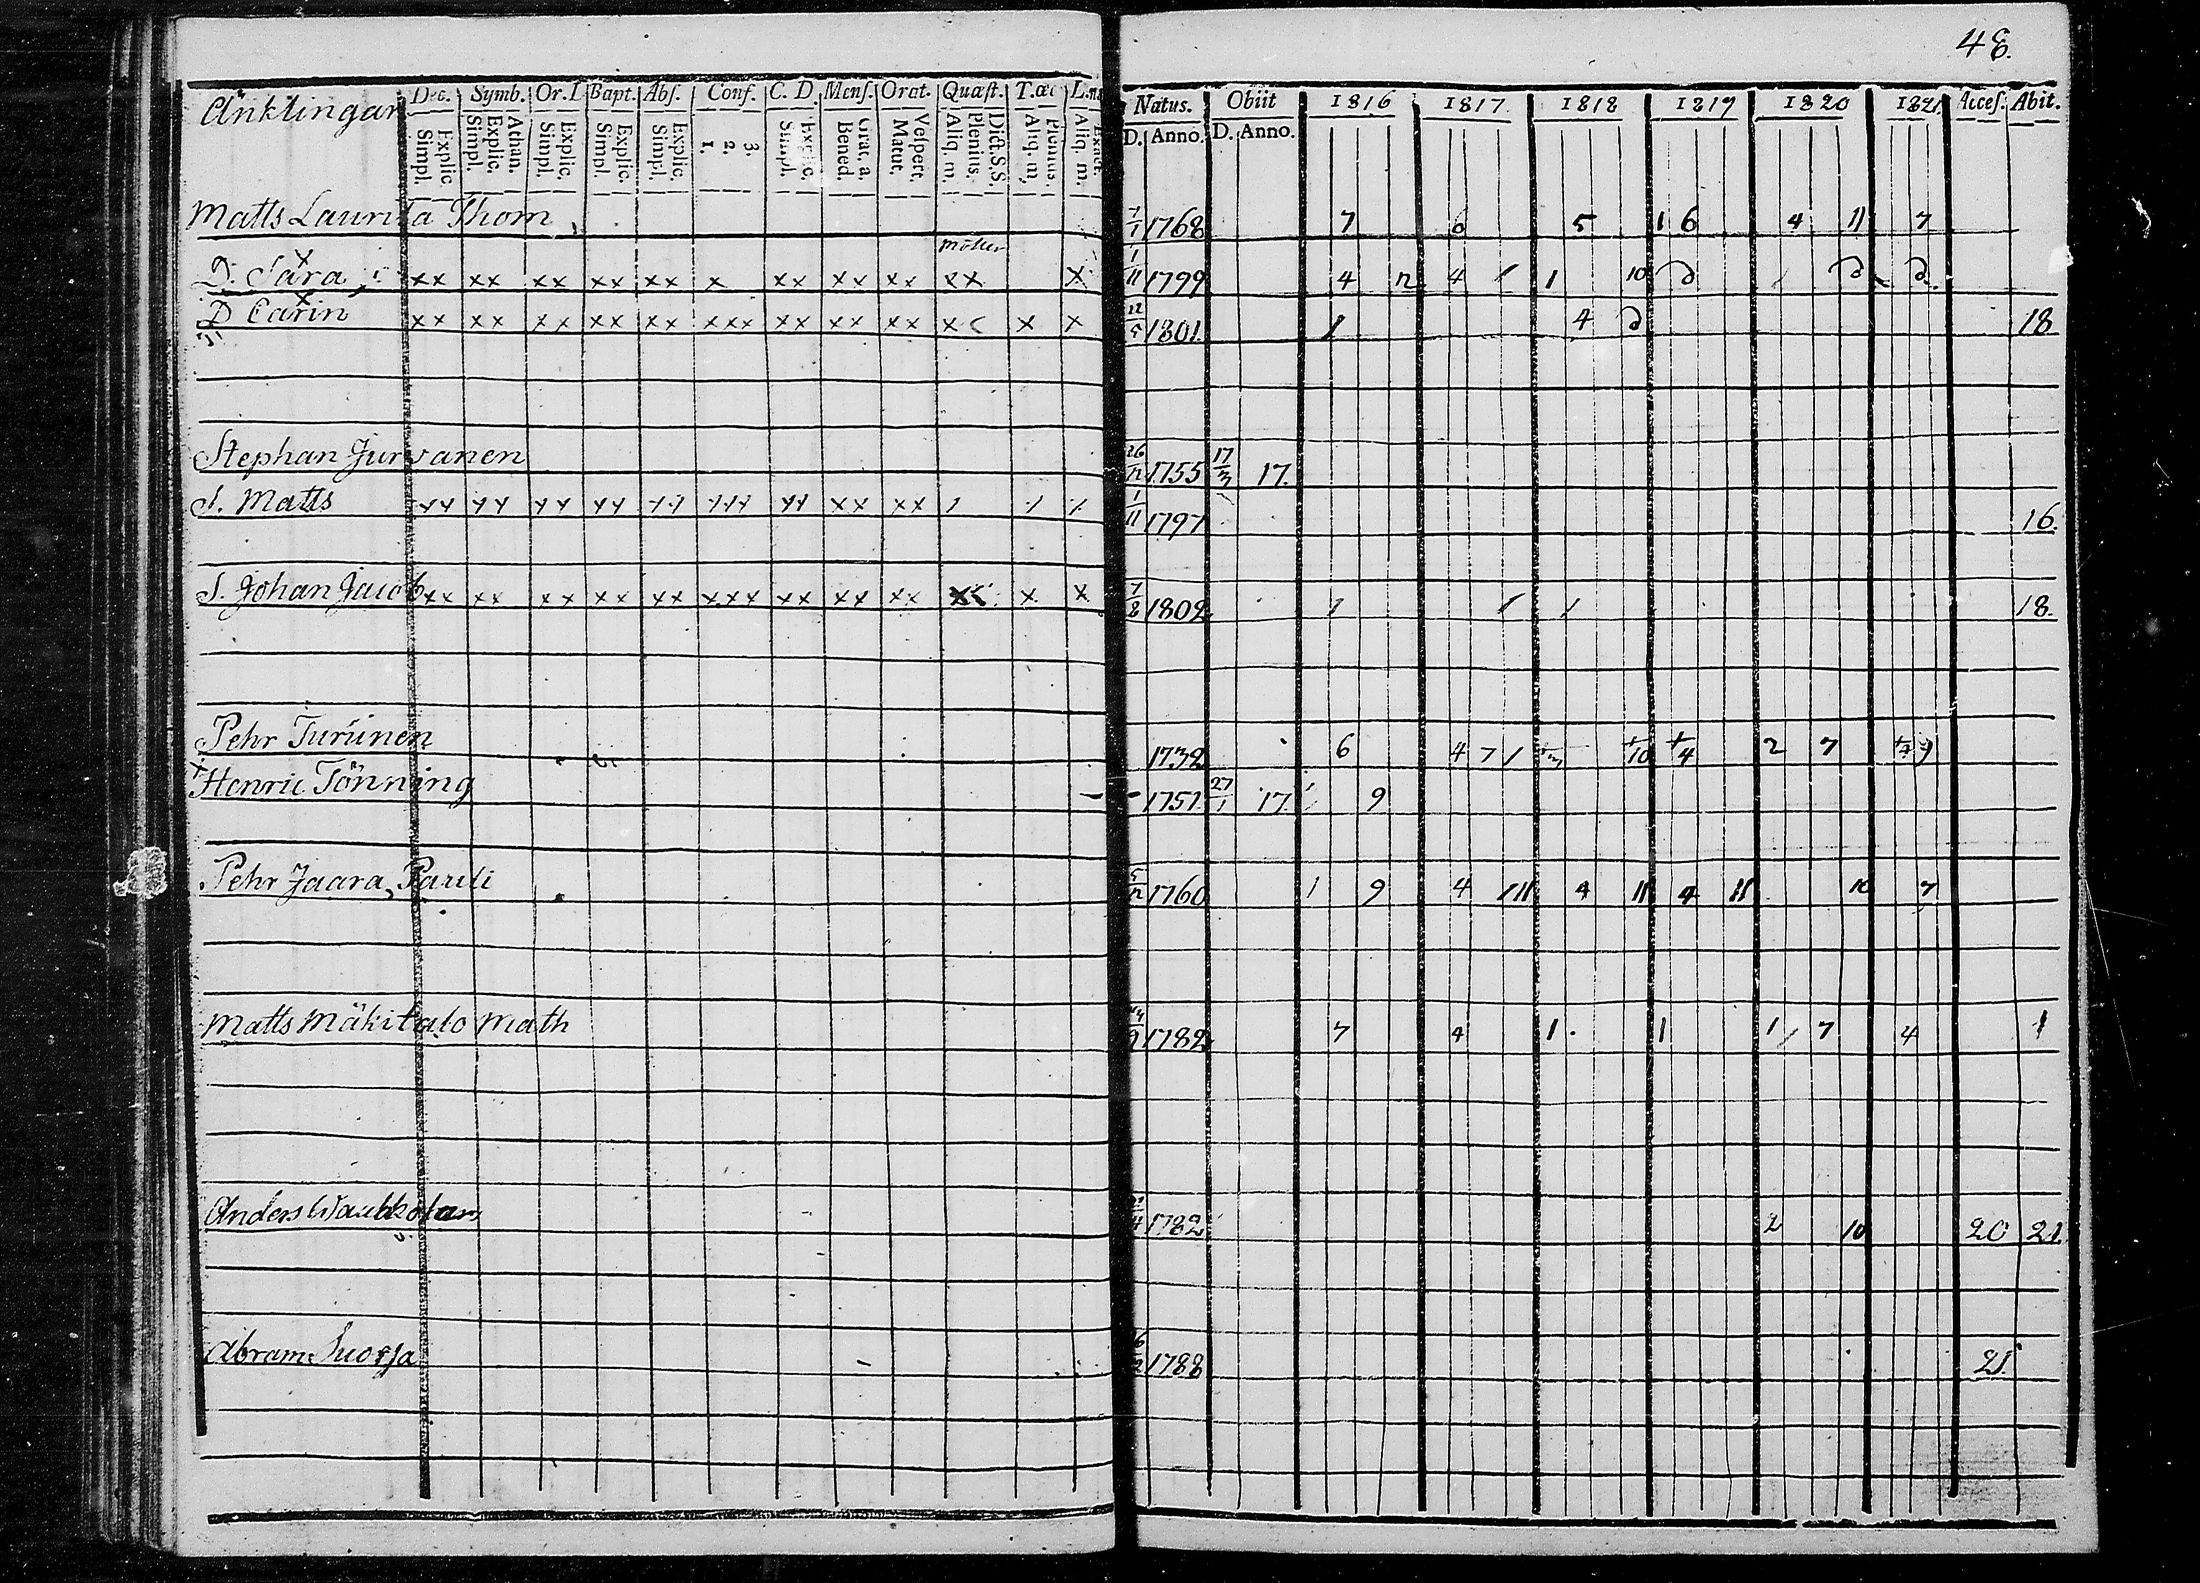 48.
Änklingar Dec. Symb. Or. D. Bapt. Abs. Conf. C. D. Mens. Orat. Quæst. T. œc L. Natus. Obiit 1816 1817 1818 1819 1820 1821 Acces. Abit.
Explic. Simpl. Athan. Explic. Simpl. Explic. Simpl. Explic. Simpl. Explic. Simpl. 3. 2. 1. Explic. Simpl. Grat. a. Bened. Vespert. Matut. Dict. S. S. Plenius. Aliq. m. Plenius. Aliq. m. Exact. Aliq. m. D. Anno. D. Anno.
Matts Laurila Thom 1/1 1768 7 6 5 1 6 4 11 7
D. Sara xx xx xx xx xx x xx xx xx xx x 1/11 1799 4 12 4 1 1 10
D Carin xx xx xx xx xx xxx xx xx xx x x x 22/5 1801. 1 4 18
Stephan Jurvanen 26/12 1755 17/3 17.
S. Matts xx xx xx xx xx xxx xx xx xx 1/11 1797 16.
S. Johan Jacob xx xx xx xx xx xxx xx xx xx x x 7/8 1802 1 1 1 18.
Pehr Turuinen 1738 6 4 7 1 10 4 2 7
Henric Tönning 1751 27/1 17 9
Pehr Jaara Pauli 5/12 1760 1 9 4 11 4 11 4 11 10 7
Matts Mäkitalo Math 1782 7 4 1 1 1 7 4 1
Anders 1782 2 10 20 21
Abram Suorsa 1788 21.